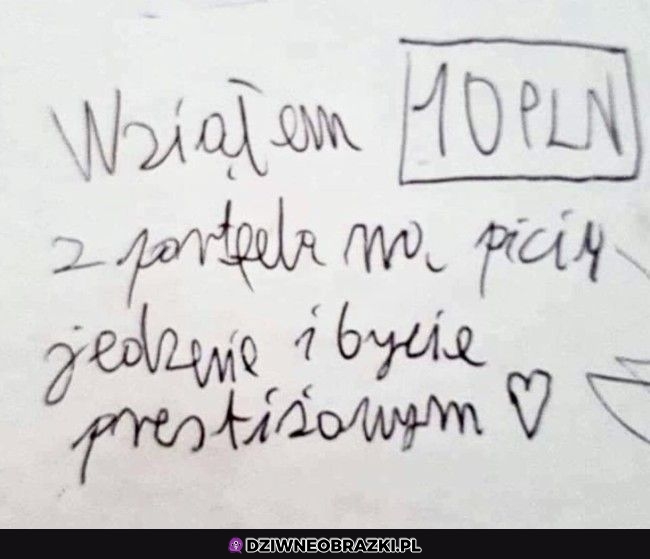 Wziąłem 10 PLN
z portfela na picie,
jedzenie i bycie
prestiżowym ♡
DZIWNEOBRAZKI.PL